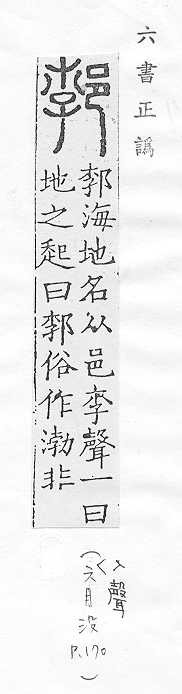 六書正譌
郣
郣海地名从邑孛聲一曰
地之起曰郣俗作渤非
入聲
(六月没 P.170)